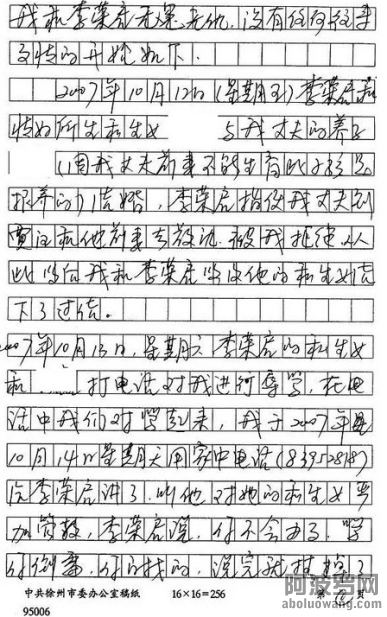 我和李荣启无怨无仇,没有任何经
交恼的开始如下.
2007年10月12日(星期五)李荣启和
情妇所生私生女 与我丈夫的养子
(因我丈夫前妻不能生育此子
抱养的)结婚,李荣启指使我丈夫到
贾汪和他前妻去,被我拒绝从
此以后我和李荣启以及他的私生女结
下了过结。
2007年10月13日,星期六李荣启的私生女
和 打电话对我进行辱骂,在电
话中我们对骂起来,我于2007年
10月14日星期天用家中电话(83952818)
给李荣启讲了.叫他对她的私生女严
加管教,李荣启说.你不会办了.骂
你倒霉.你自找的,说完就挂了
中共徐州市委办公室稿纸 16×16=256 第 页
95006
阿波罗网
aboluowang.com